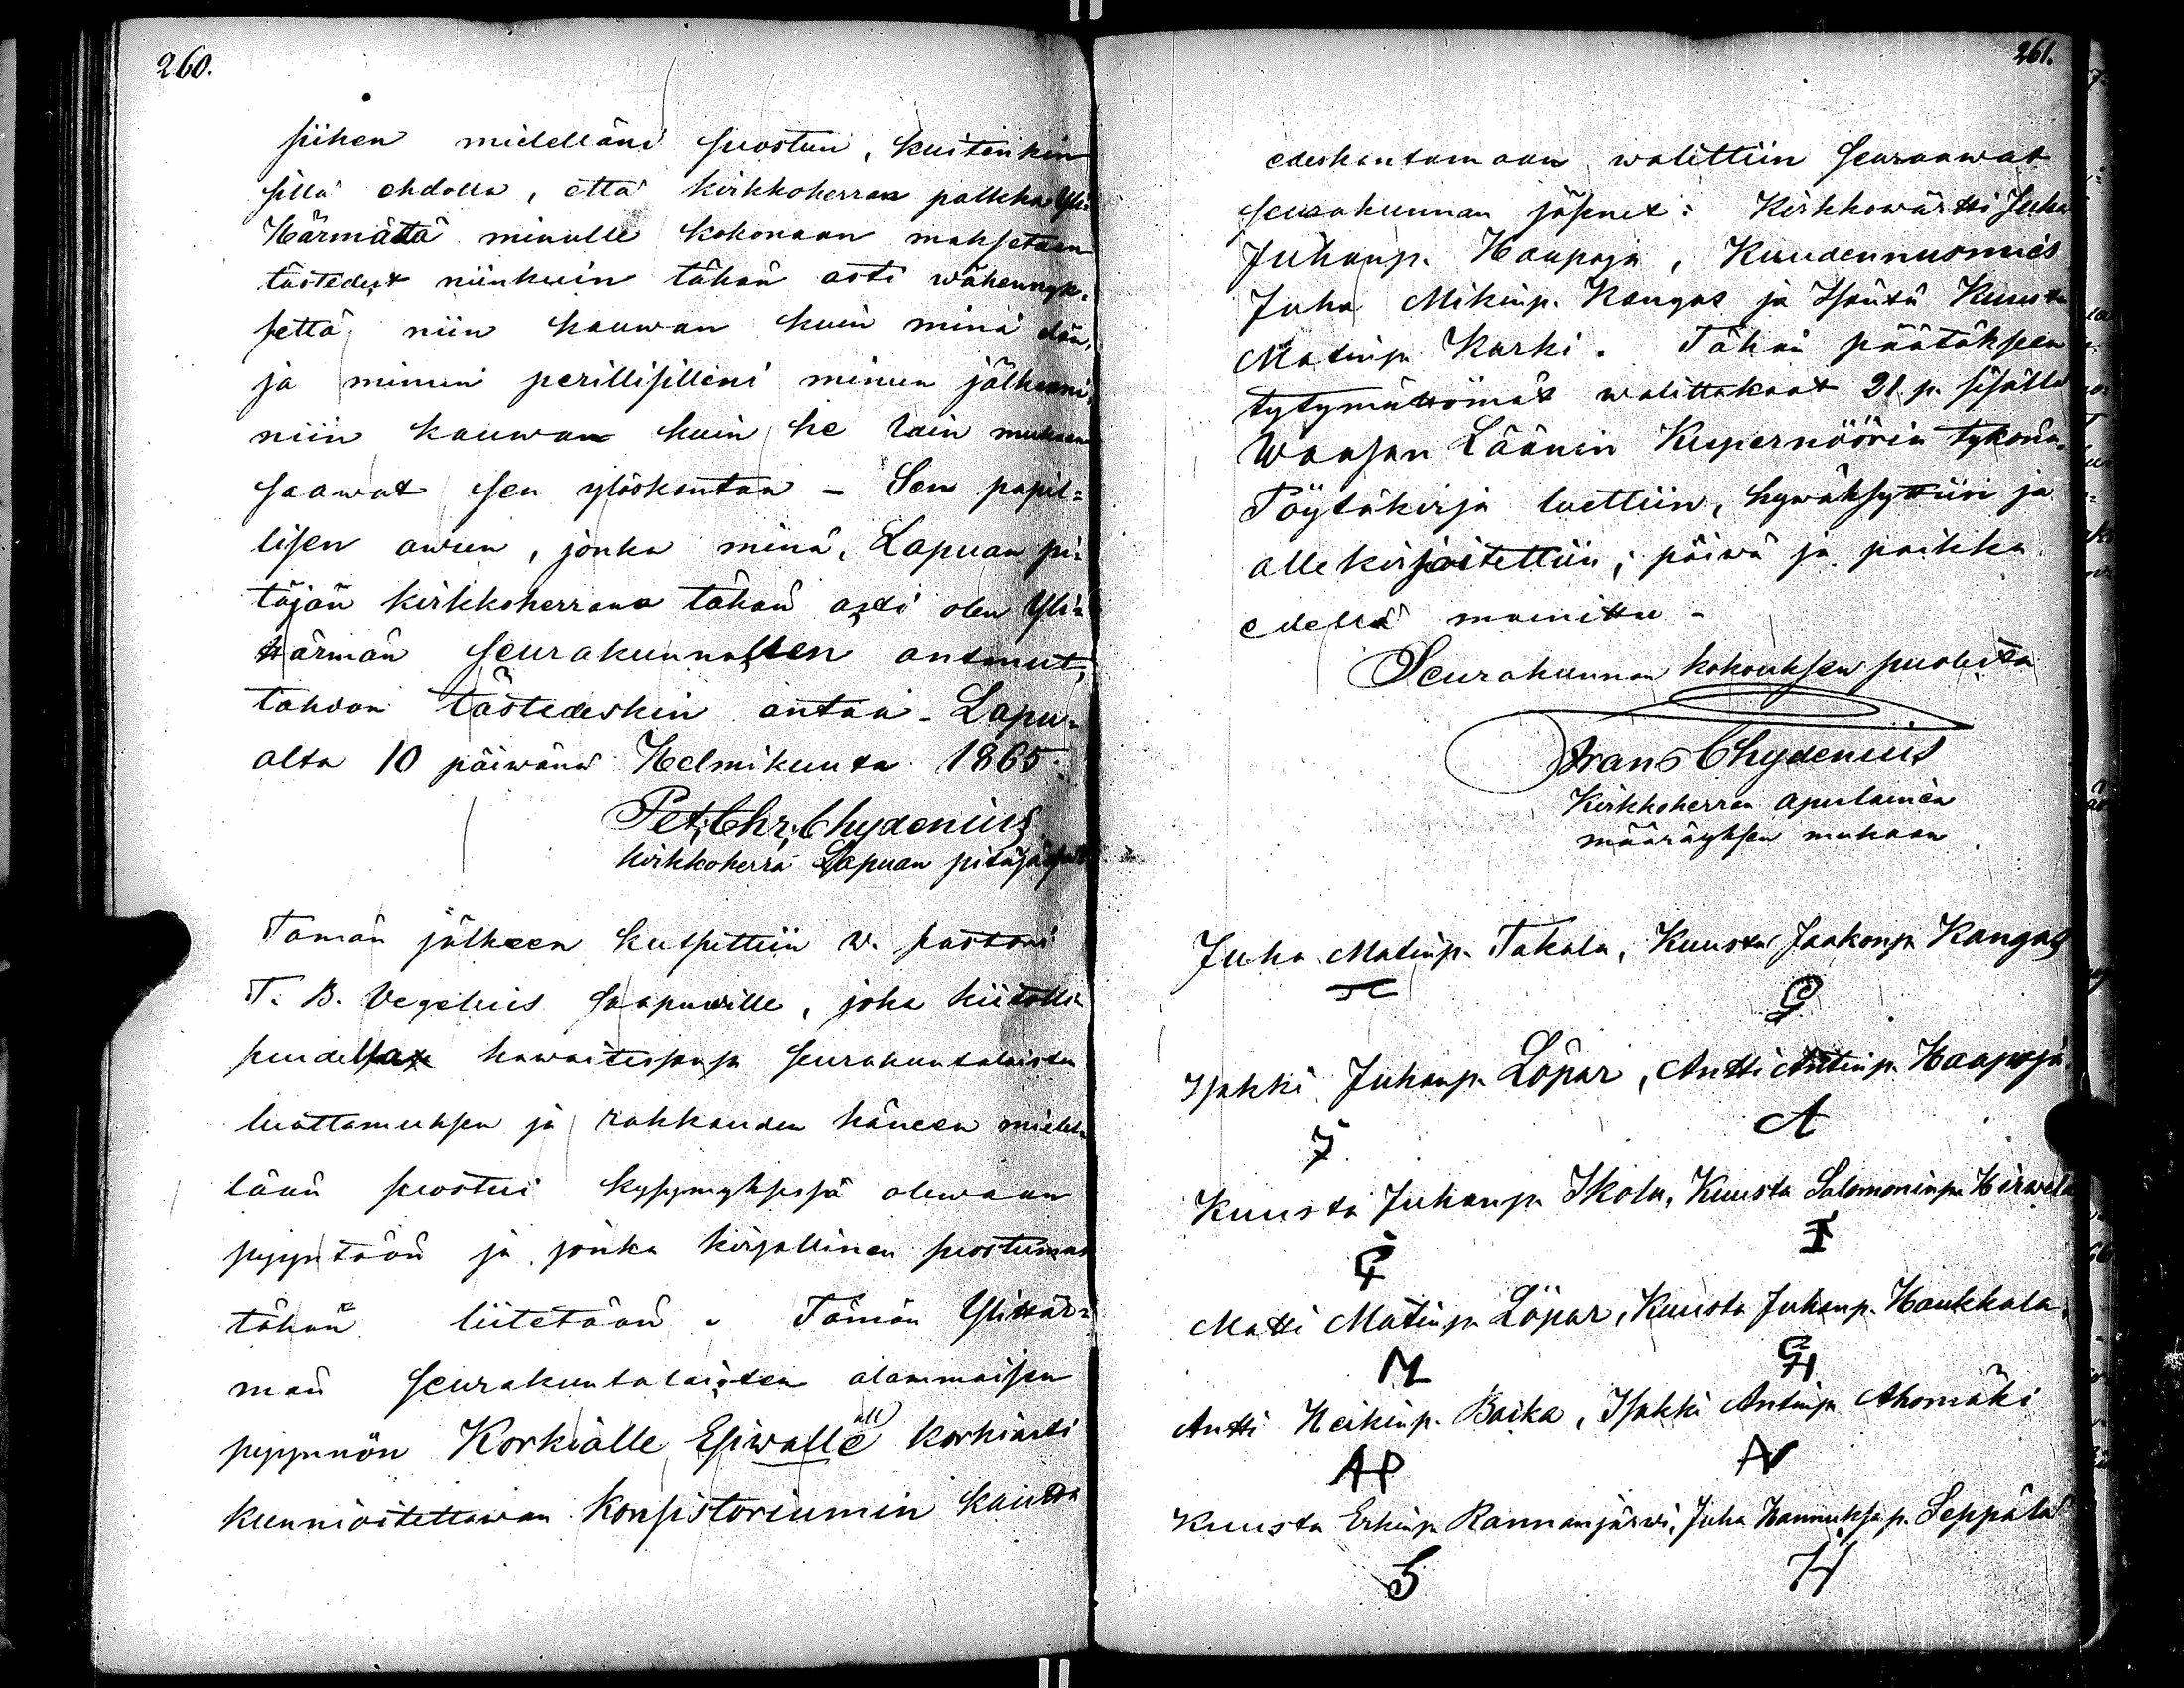 260.
siihen mielelläni suostun, kuitenkin
sillä ehdolla, että kirkkoherran palkka Yli
Härmältä minulle kokonaan maksetaan
tästedest niinkuin tähän asti wähennyk-
settä niin kauwan kuin minä elän,
ja minun perillisilleni minun jälkeeni
niin kauwan kuin he lain mukaan
saawat sen ylöskantaa – Sen papil=
lisen awun, jonka minä, Lapuan pi=
täjän kirkkoherrana tähän asti olen Yli=
härmän seurakunnallen antanut,
tahdon tästedeskin antaa – Lapu=
alta 10 päiwänä Helmikuuta 1865.
Pet. Chr. Chydenius
kirkkoherra Lapuan pitäjässä
Tämän jälkeen kutsuttiin w. pastori
T. B. Vegelius saapuwille, joka kiitolli
suudella hawaitessansa seurakuntalaisten
luottamuksen ja rakkauden häneen mielel
lään suostui kysymyksessä olewaan
pyyntöön ja jonka kirjallinen suostumus
tähän liitetään. Tämän Ylihär=
män seurakuntalaisten alammaisen
pyynnön Korkialle Esiwallalle korkiasti
kunnioitettawan Konsistoriumin kautta
261.
edeskantamaan walittiin seuraawat
seurakunnan jäsenet: Kirkkowärtti Juha
Juhanp. Haapoja, Kuudennusmies
Juha Mikinp. Kangas ja Isäntä Kuusta
Matinp. Karki. Tähän päätöksen
tytymättömät walittakaat 21 p. sisällä
Waasan Läänin Kupernöörin tykönä.
Pöytäkirja luettiin, hywäksyttiin ja
allekirjoitettiin; päiwä ja paikka
edellä mainittu –
Seurakunnan kokouksen puolesta
Frans Chydenius
Kirkkoherran apulainen
määräyksen mukaan.
Juha Matinp. Takala, Kuusta Jaakonp. Kangas
Isakki Juhanp. Löpar, Antti Antinp. Haapoja
J A
Kuusta Juhanp. Ikola, Kuusta Salomoninp. Hirwelä
Matti Matinp. Löpar, Kuusta Juhanp. Haukkala
M
Antti Heikinp. Baika, Isakki Antinp. Ahomäki
AP
Kuusta Erkinp. Rannanjärwi, Juha Hannuksen p. Seppälä
S H